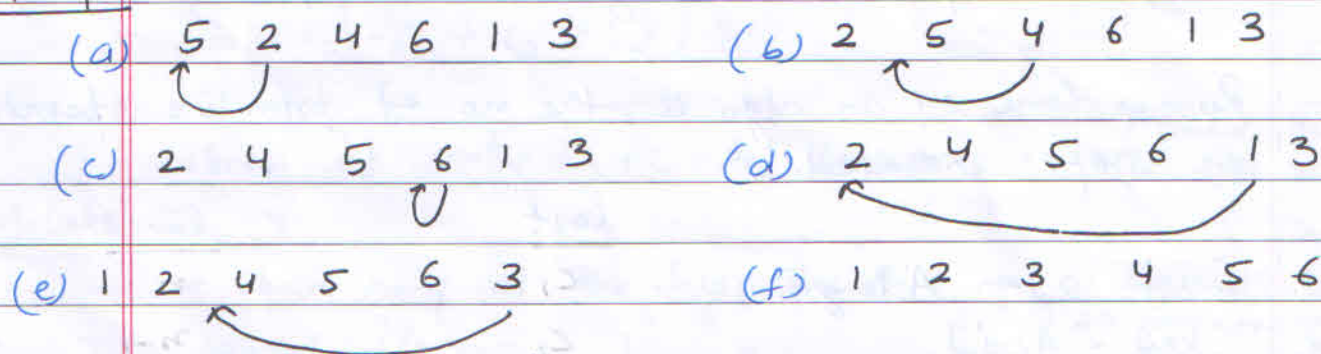 (a) 5 2 4 6 1 3 (b) 2 5 4 6 1 3
(c) 2 4 5 6 1 3 (d) 2 4 5 6 1 3
(e) 1 2 4 5 6 3 (f) 1 2 3 4 5 6